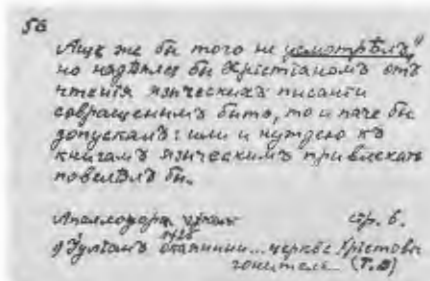 56
Аще же бы того не усмотрѣлъ,
но надѣялся бы Хрістіаномъ отъ
чтенія языческихъ писаній
совращеннымъ быть, то и паче бы
допускалъ: или и нуждею къ
книгамъ языческимъ привлекать
повелѣлъ бы.
стр. 6.
Іуліанъ ... церкве Хрістовы
гонитель (Т.В)